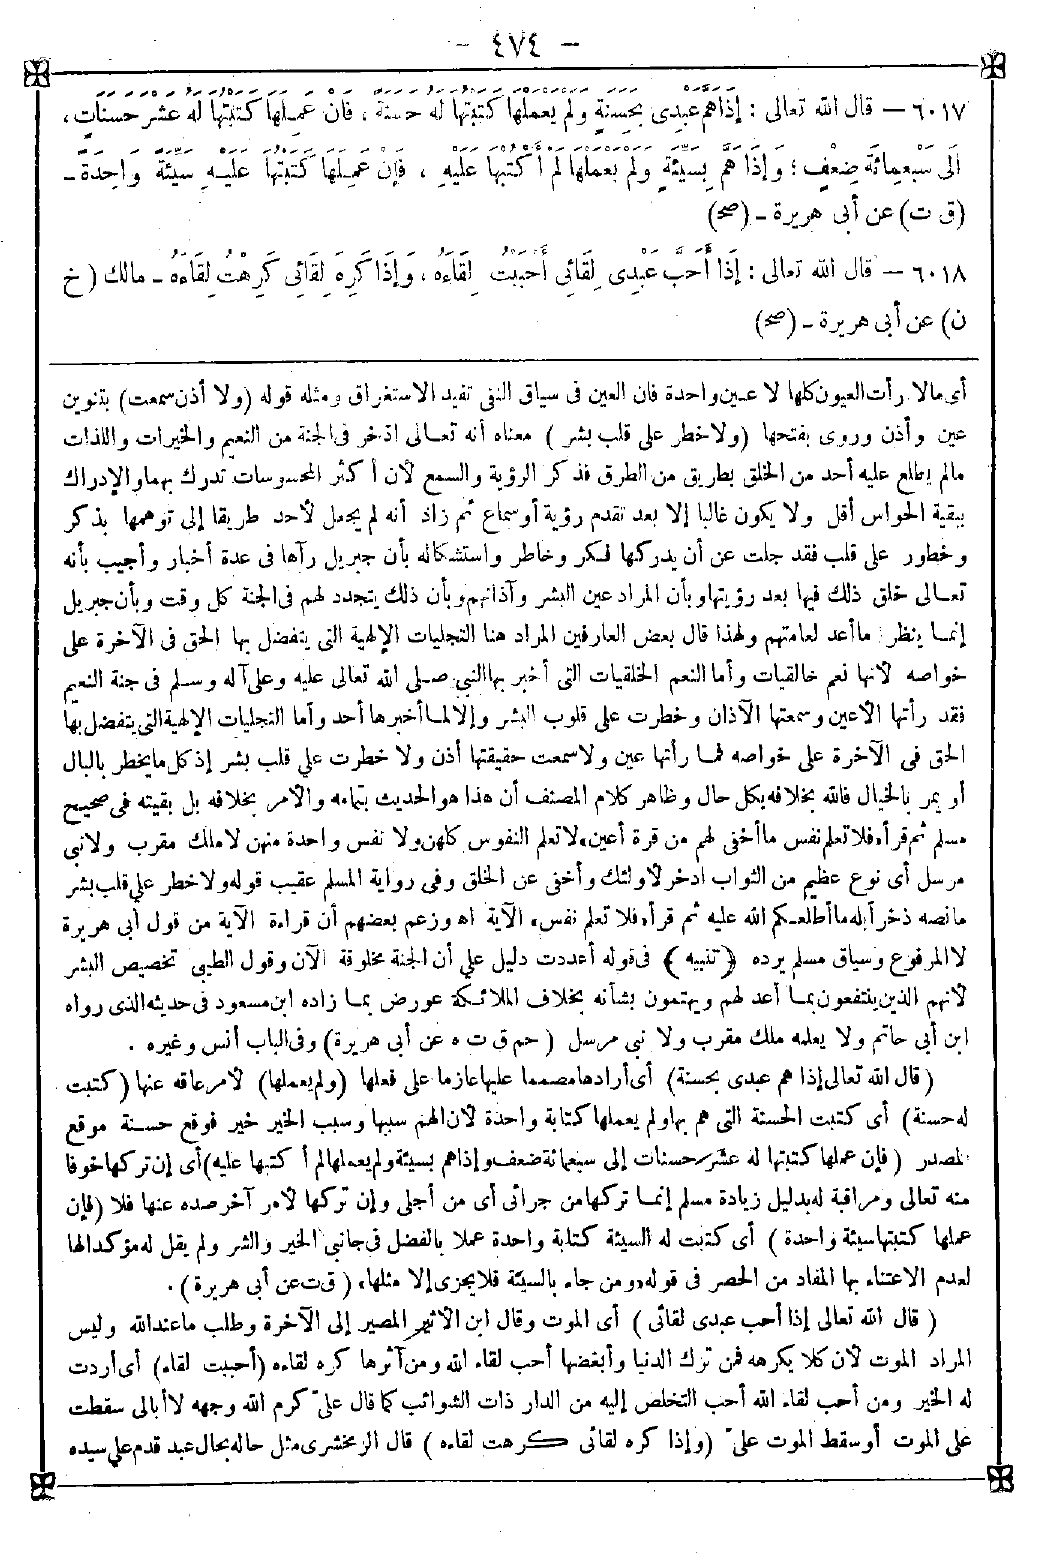 - ٤٧٤ -
٦٠١٧ — قال الله تعالى : إِذَا هَمَّ عَبْدِى بِحَسَنَةٍ وَلَمْ يَعْمَلْهَا كَتَبْتُهَا لَهُ حَسَنَةً ، فَإِنْ عَمِلَهَا كَتَبْتُهَا لَهُ عَشْرَ حَسَنَاتٍ ،
إِلَى سَبْعِمِائَةِ ضِعْفٍ ؛ وَإِذَا هَمَّ بِسَيِّئَةٍ وَلَمْ يَعْمَلْهَا لَمْ أَكْتُبْهَا عَلَيْهِ ، فَإِنْ عَمِلَهَا كَتَبْتُهَا عَلَيْهِ سَيِّئَةً وَاحِدَةً -
(ق ت) عن أبى هريرة - (صح)
٦٠١٨ — قال الله تعالى : إِذَا أَحَبَّ عَبْدِى لِقَائِى أَحْبَبْتُ لِقَاءَهُ ، وَإِذَا كَرِهَ لِقَائِى كَرِهْتُ لِقَاءَهُ - مالك (خ
ن) عن أبى هريرة - (صح)
أى مالا رأت العيون كلها لا عين واحدة فان العين فى سياق النفى تفيد الاستغراق ومثله قوله (ولا أذن سمعت) بتنوين
عين وأذن وروى بفتحها (ولا خطر على قلب بشر) معناه أنه تعالى ادخر فى الجنة من النعيم والخيرات واللذات
مالم يطلع عليه أحد من الخلق بطريق من الطرق فذكر الرؤية والسمع لأن أكثر المحسوسات تدرك بهما والإدراك
ببقية الحواس أقل ولا يكون غالبا إلا بعد تقدم رؤية أو سماع ثم زاد أنه لم يجعل لأحد طريقا إلى توهمها بذكر
وخطور على قلب فقد جلت عن أن يدركها فكر وخاطر واستشكاله بأن جبريل رآها فى عدة أخبار وأجيب بأنه
تعالى خلق ذلك فيها بعد رؤيتها وبأن المراد عين البشر وآذانهم وبأن ذلك يتجدد لهم فى الجنة كل وقت وبأن جبريل
إنما ينظر ما أعد لعامتهم ولهذا قال بعض العارفين المراد هنا التجليات الإلهية التى يتفضل بها الحق فى الآخرة على
خواصه لأنها نعم خالقيات وأما النعم الخلقيات التى أخبر بها النبى صلى الله تعالى عليه وعلى آله وسلم فى جنة النعيم
فقد رأتها الأعين وسمعتها الآذان وخطرت على قلوب البشر وإلا لما أخبرها أحد وأما التجليات الإلهية التى يتفضل بها
الحق فى الآخرة على خواصه فما رأتها عين ولا سمعت حقيقتها أذن ولا خطرت على قلب بشر إذ كل ما يخطر بالبال
أو يمر بالخيال فالله بخلافه بكل حال وظاهر كلام المصنف أن هذا هو الحديث بتمامه والأمر بخلافه بل بقيته فى صحيح
مسلم ثم قرأ «فلا تعلم نفس ما أخفى لهم من قرة أعين» لا تعلم النفوس كلهن ولا نفس واحدة منهن لا ملك مقرب ولا نبى
مرسل أى نوع عظيم من الثواب ادخر لأولئك وأخفى عن الخلق وفى رواية المسلم عقيب قوله ولا خطر على قلب بشر
ما نصه ذخرا بله ما أطلعكم الله عليه ثم قرأ «فلا تعلم نفس» الآية اه وزعم بعضهم أن قراءة الآية من قول أبى هريرة
لا المرفوع وسياق مسلم يرده ﴿تنبيه﴾ فى قوله أعددت دليل على أن الجنة مخلوقة الآن وقول الطيبى تخصيص البشر
لأنهم الذين ينتفعون بما أعد لهم ويهتمون بشأنه بخلاف الملائكة عورض بما زاده ابن مسعود فى حديثه الذى رواه
ابن أبى حاتم ولا يعلمه ملك مقرب ولا نبى مرسل (حم ق ت ه عن أبى هريرة) وفى الباب أنس وغيره .
(قال الله تعالى إذا هم عبدى بحسنة) أى أرادها مصمما عليها عازما على فعلها (ولم يعملها) لأمر عاقه عنها (كتبت
له حسنة) أى كتبت الحسنة التى هم بها ولم يعملها كتابة واحدة لأن الهم سببها وسبب الخير خير فوقع حسنة موقع
المصدر (فإن عملها كتبتها له عشر حسنات إلى سبعمائة ضعف وإذا هم بسيئة ولم يعملها لم أكتبها عليه) أى إن تركها خوفا
منه تعالى ومراقبة له بدليل زيادة مسلم إنما تركها من جرائى أى من أجلى وإن تركها لأمر آخر صده عنها فلا (فإن
عملها كتبتها سيئة واحدة) أى كتبت له السيئة كتابة واحدة عملا بالفضل فى جانبى الخير والشر ولم يقل له مؤكدا لها
لعدم الاعتناء بها المفاد من الحصر فى قوله «ومن جاء بالسيئة فلا يجزى إلا مثلها» (ق ت عن أبى هريرة) .
(قال الله تعالى إذا أحب عبدى لقائى) أى الموت وقال ابن الأثير المصير إلى الآخرة وطلب ما عند الله وليس
المراد الموت لأن كلا يكرهه فمن ترك الدنيا وأبغضها أحب لقاء الله ومن آثرها كره لقاءه (أحببت لقاءه) أى أردت
له الخير ومن أحب لقاء الله أحب التخلص إليه من الدار ذات الشوائب كما قال علىّ كرم الله وجهه لا أبالى سقطت
على الموت أو سقط الموت علىّ (وإذا كره لقائى كرهت لقاءه) قال الزمخشرى مثل حاله بحال عبد قدم على سيده